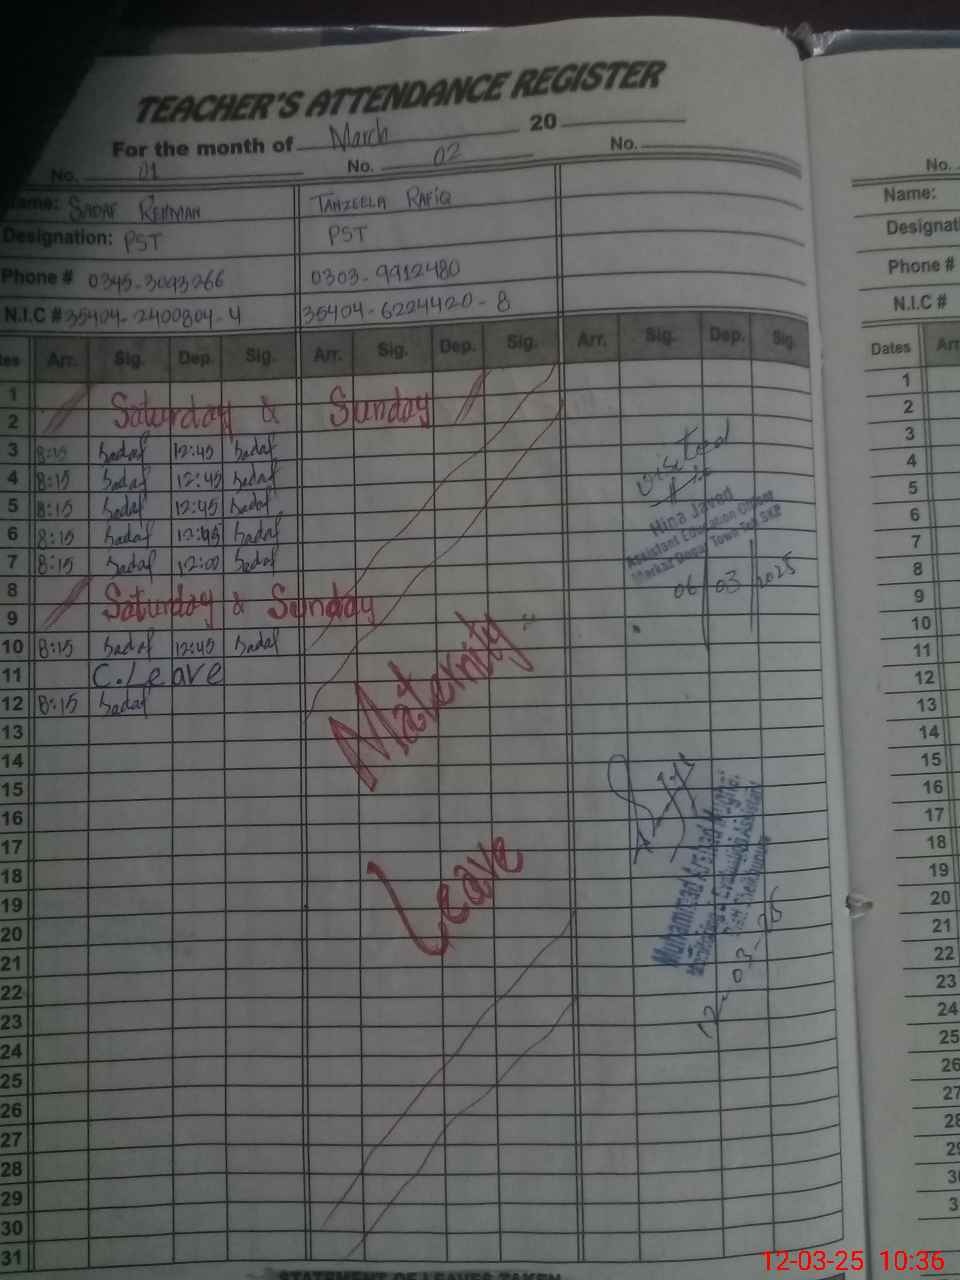 TEACHER'S ATTENDANCE REGISTER
For the month of March 20
No. 01 No. 02 No.
Name: SADAF REHMAN TANZEELA RAFIQ
Designation: PST PST
Phone # 0345-3093266 0303-9912480
N.I.C # 35404-2400804-4 35404-6224420-8
Arr. Sig. Dep. Sig. Arr. Sig. Dep. Sig. Arr. Sig. Dep. Sig.
1
2 Saturday & Sunday
3 8:15 Sadaf 12:45 Sadaf
4 8:15 Sadaf 12:45 Sadaf
5 8:15 Sadaf 12:45 Sadaf
6 8:15 Sadaf 12:45 Sadaf
7 8:15 Sadaf 12:00 Sadaf
8
9 Saturday & Sunday
10 8:15 Sadaf 12:45 Sadaf
11 C.Leave
12 8:15 Sadaf
13
14
15
16
17
18
19
20
21
22
23
24
25
26
27
28
29
30
31
Maternity
Leave
visited
Hina Javed
Assistant Education Officer
06/03/2025
Muhammad Arshad
12-03-25
STATEMENT OF LEAVES TAKEN
No.
Name:
Phone #
N.I.C #
Dates
1
2
3
4
5
6
7
8
9
10
11
12
13
14
15
16
17
18
19
20
21
22
23
24
25
26
27
12-03-25 10:36